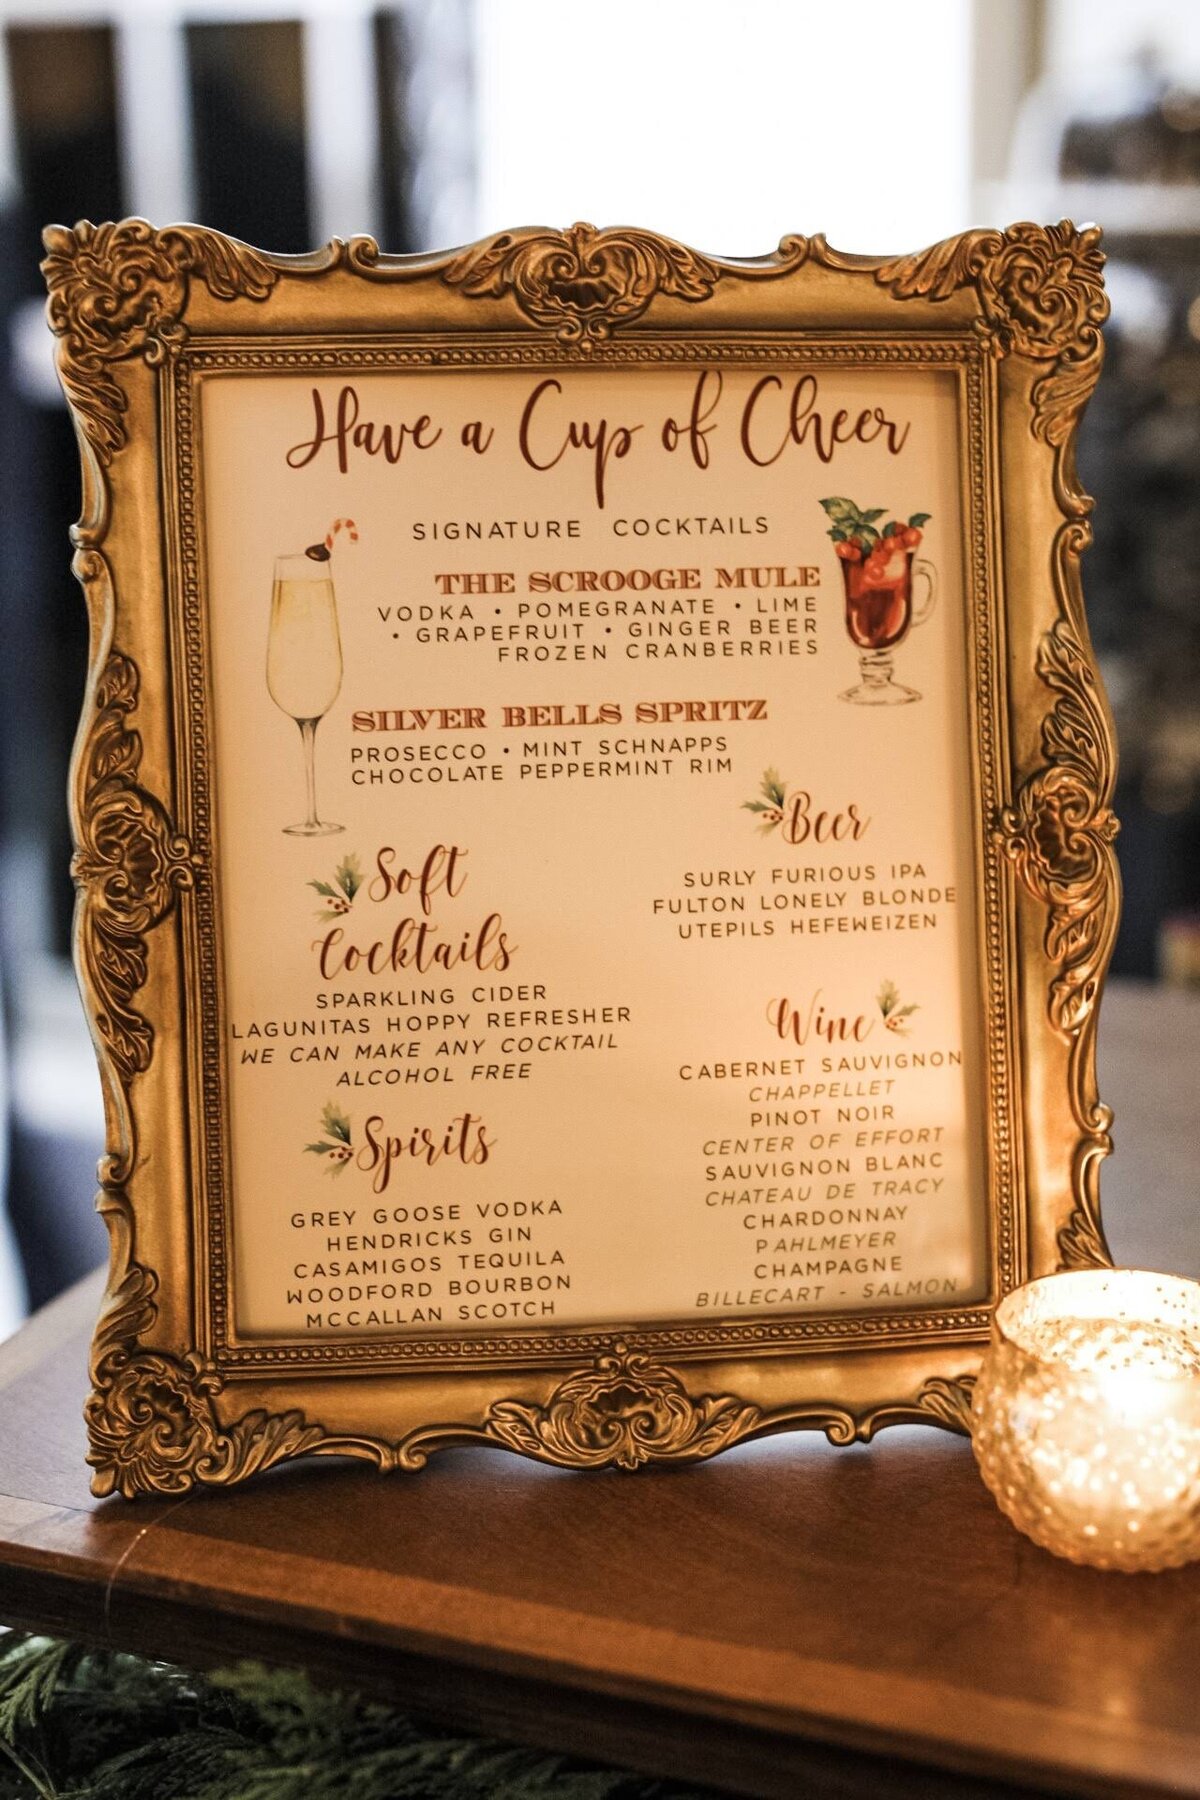 Have a Cup of Cheer
SIGNATURE COCKTAILS
THE SCROOGE MULE
VODKA • POMEGRANATE • LIME
• GRAPEFRUIT • GINGER BEER
FROZEN CRANBERRIES
SILVER BELLS SPRITZ
PROSECCO • MINT SCHNAPPS
CHOCOLATE PEPPERMINT RIM
Soft
Cocktails
SPARKLING CIDER
LAGUNITAS HOPPY REFRESHER
WE CAN MAKE ANY COCKTAIL
ALCOHOL FREE
Spirits
GREY GOOSE VODKA
HENDRICKS GIN
CASAMIGOS TEQUILA
WOODFORD BOURBON
MCCALLAN SCOTCH
Beer
SURLY FURIOUS IPA
FULTON LONELY BLONDE
UTEPILS HEFEWEIZEN
Wine
CABERNET SAUVIGNON
CHAPPELLET
PINOT NOIR
CENTER OF EFFORT
SAUVIGNON BLANC
CHATEAU DE TRACY
CHARDONNAY
PAHLMEYER
CHAMPAGNE
BILLECART - SALMON